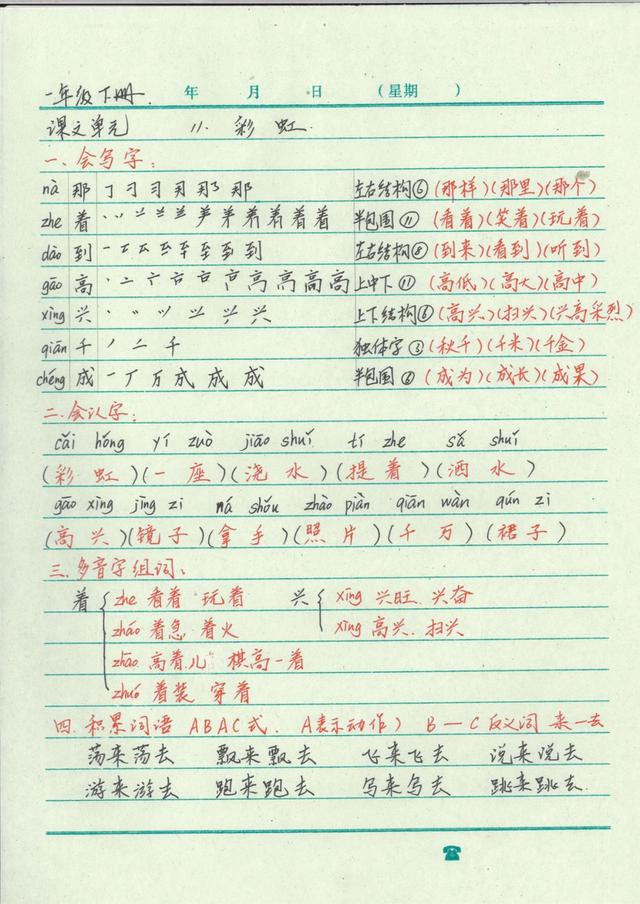 一年级下册 年 月 日 (星期 )
课文单元 11. 彩虹
一. 会写字:
nà 那 左右结构⑥ (那样)(那里)(那个)
zhe 着 半包围⑪ (看着)(笑着)(玩着)
dào 到 左右结构⑧ (到来)(看到)(听到)
gāo 高 上中下⑪ (高低)(高大)(高中)
xìng 兴 上下结构⑥ (高兴)(扫兴)(兴高采烈)
qiān 千 独体字③ (秋千)(千米)(千金)
chéng 成 半包围⑥ (成为)(成长)(成果)
二. 会认字:
cǎi hóng yí zuò jiāo shuǐ tí zhe sǎ shuǐ
(彩虹)(一座)(浇水)(提着)(洒水)
gāo xìng jìng zi ná shǒu zhào piàn qiān wàn qún zi
(高兴)(镜子)(拿手)(照片)(千万)(裙子)
三. 多音字组词:
着 zhe 看着 玩着 兴 xīng 兴旺. 兴奋
zháo 着急. 着火 xìng 高兴. 扫兴
zhāo 高着儿 棋高一着
zhuó 着装 穿着
四. 积累词语 ABAC式. A表示动作) B—C反义词 来一去
荡来荡去 飘来飘去 飞来飞去 说来说去
游来游去 跑来跑去 写来写去 跳来跳去.